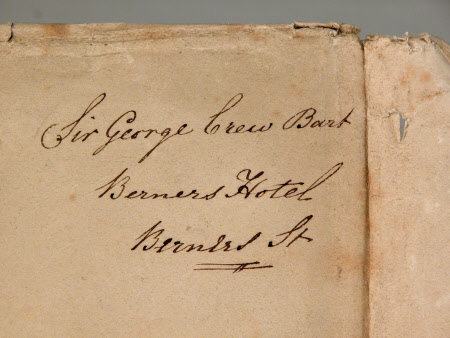 Sir George Crew Bart
Berners Hotel
Berners St